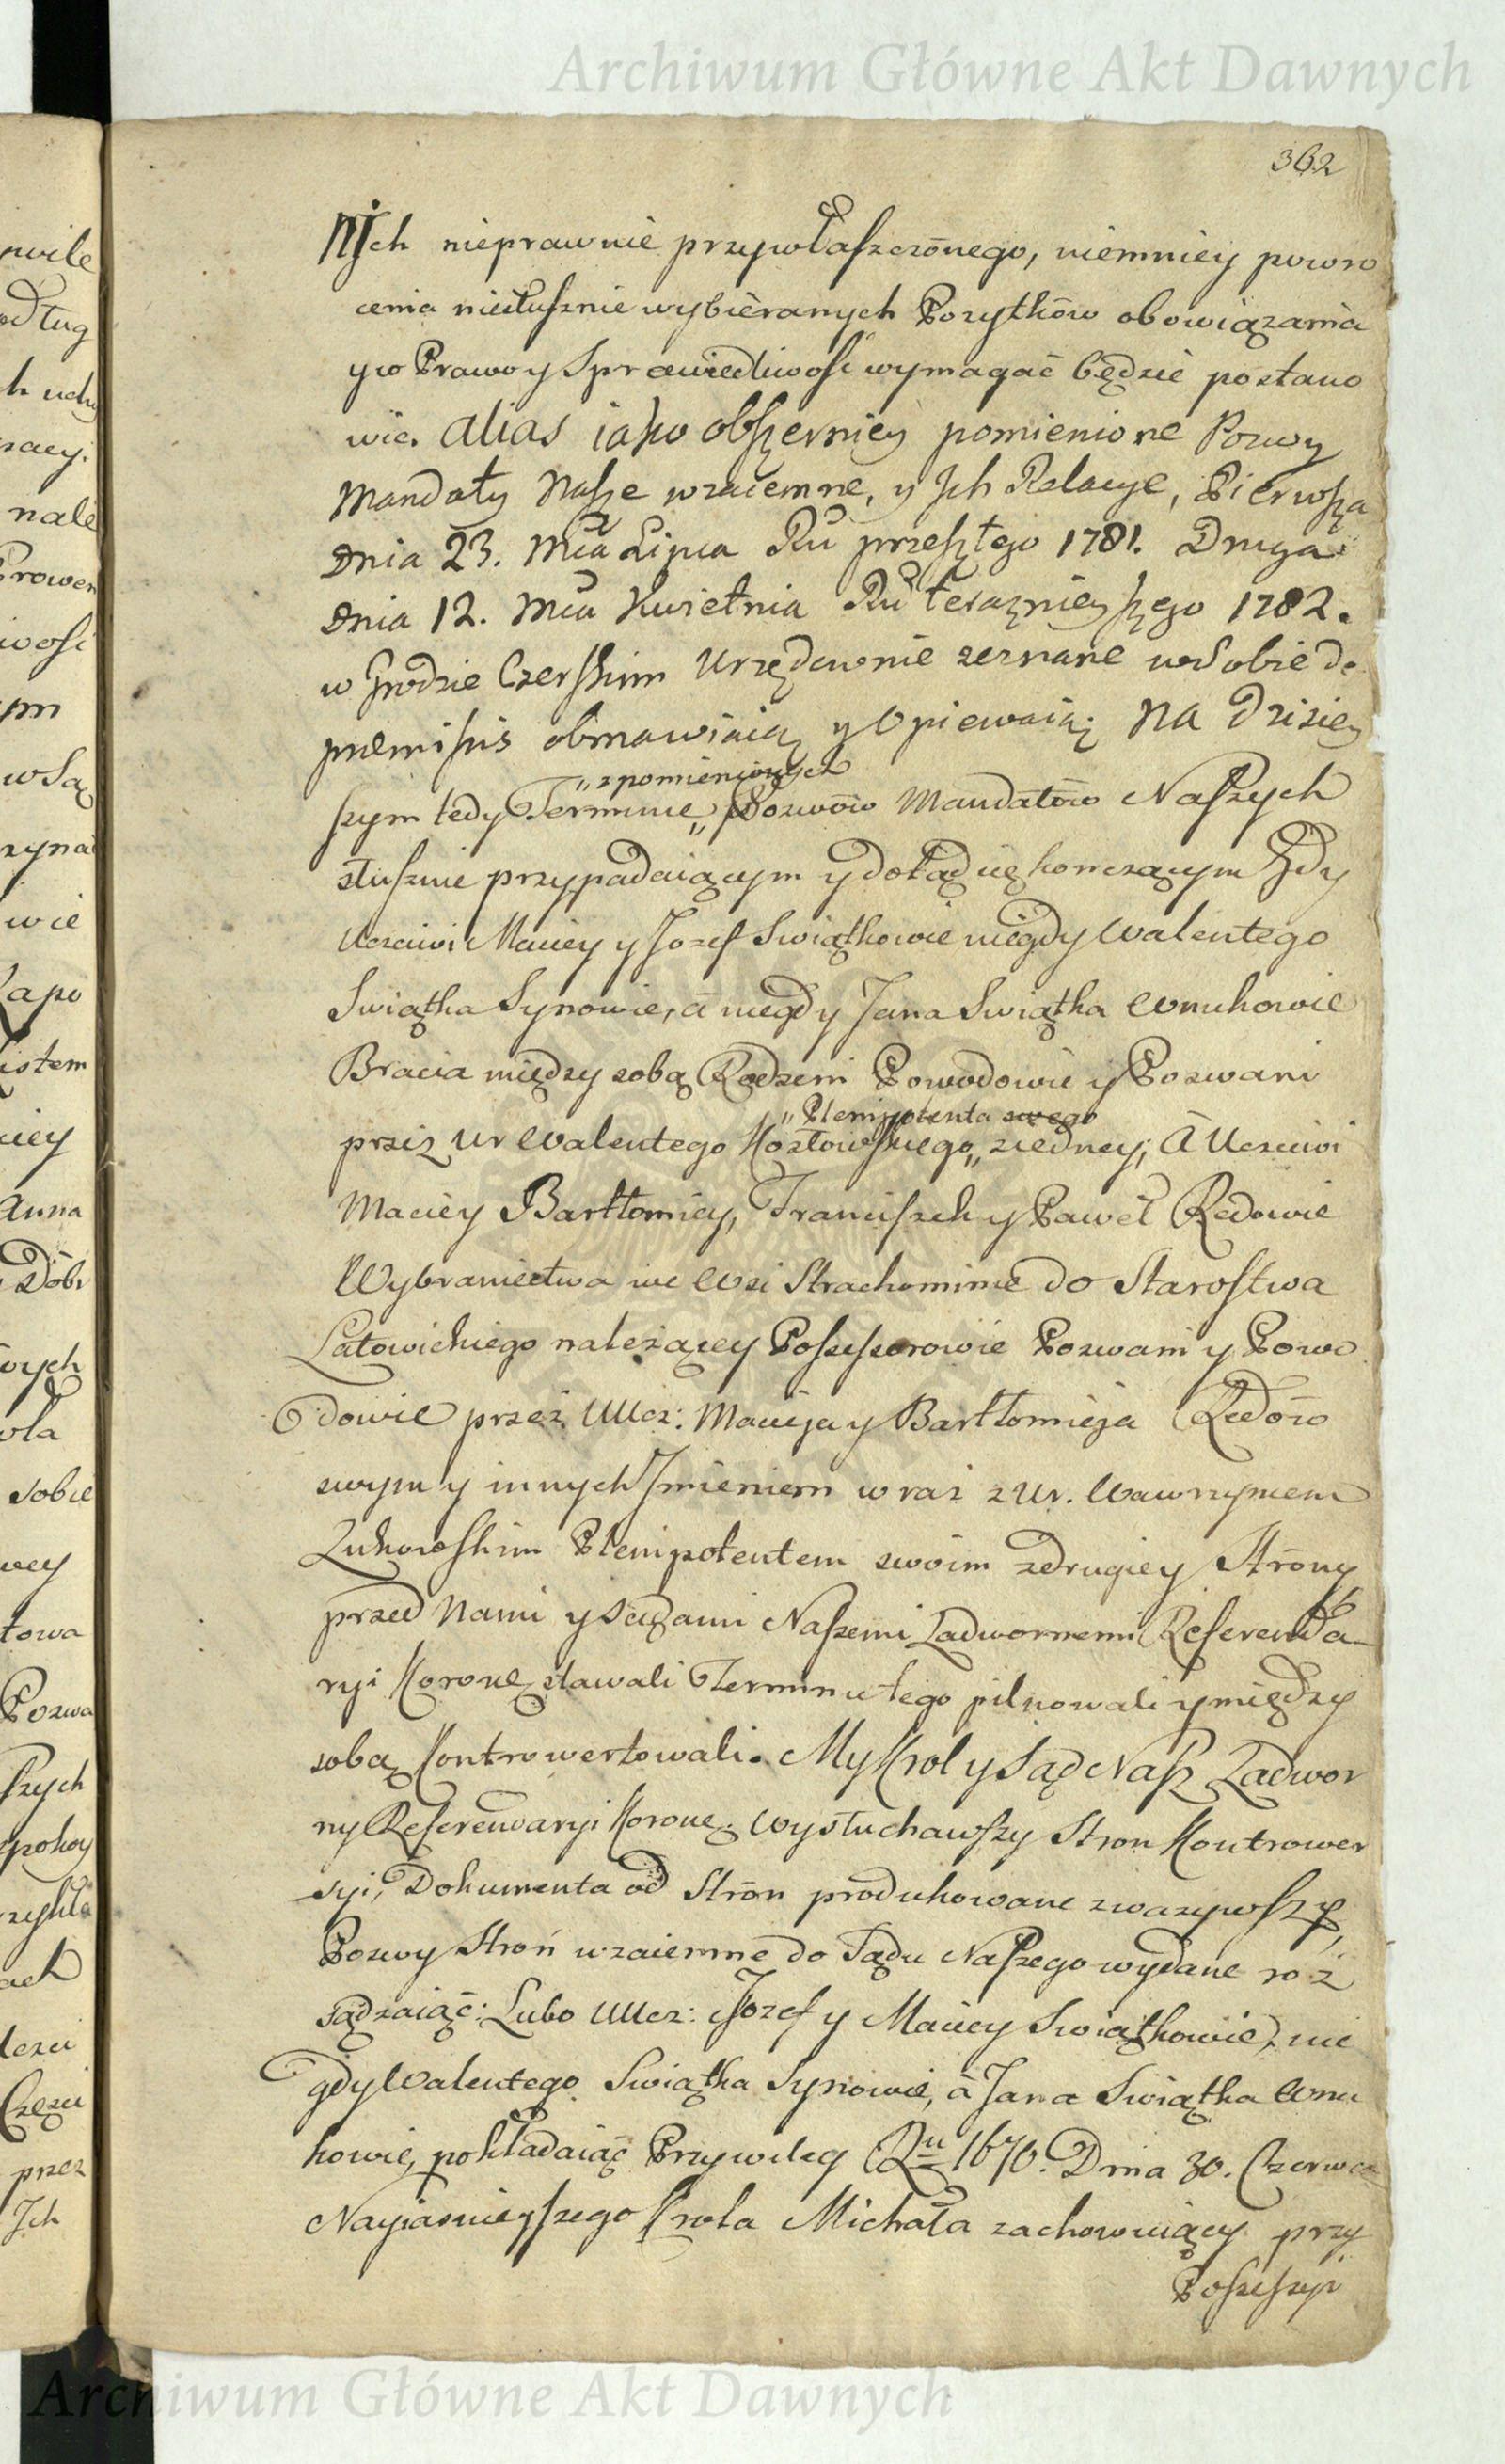 Archiwum Główne Akt Dawnych
362
Nich nieprawnie przywłaszczonego, niemniey powro
cenia niesłusznie wybieranych Pozytków obowiązania
y co Prawo y Sprawiedliwość wymagać będzie postano
wić. Alias iako obszerniey pomienione Pozwy
Mandaty Nasze wzaiemne, y Ich Relacye, Pierwsza
Dnia 23. Mca Lipca Ru przeszłego 1781. Druga
Dnia 12. Mca Kwietnia Ru teraznieyszego 1782.
w Grodzie Czerskim Urzędownie zeznane w sobie de
premissis obmawiaią y Opiewaią; Na dzisiey
„zpomienionych
szym tedy Terminie„ Pozwów Mandatów Naszych
słusznie przypadaiącym y dotąd się konczącym Gdy
Uczciwi Maciey y Jozef Swiątkowie niegdy Walentego
Swiątka Synowie, a niegdy Jana Swiątka Wnukowie
Bracia między sobą Rodzeni Powodowie y Pozwani
„Plenipotenta swego
przez Ur Walentego Kozłowskiego„ ziedney, A Uczciwi
Maciey Bartłomiey, Franciszek y Paweł Redowie
Wybraniectwa we Wsi Strachominie do Starostwa
Latowickiego należącey Possessorowie Pozwani y Powo
dowie przez UUcz: Macieja y Bartłomieja Redów
swym y innych Imieniem wraz z Ur. Wawrzyncem
Zukowskim Plenipotentem swoim zdrugiey Strony
przed Nami y Sądami Naszemi Zadwornemi Referenda-
ryi Koronę. stawali Terminu tego pilnowali y między
sobą Kontrowertowali. My Krol y Sąd Nasz Zadwor
ny Referendaryi Koronę. Wysłuchawszy Stron Kontrower
syi, Dokumenta od Stron produkowane zwazywszy,
Pozwy Stron wzaiemne do Sądu Naszego wydane roz
sądzaiąc: Lubo UUcz: Jozef y Maciey Swiątkowie, nie
gdy Walentego Swiątka Synowie, a Jana Swiątka Wnu
kowie, pokładaiąc Przywiley Ru 1670. Dnia 30. Czerwca
Nayiasnieyszego Krola Michała zachowuiący przy
Possessyi
Archiwum Główne Akt Dawnych